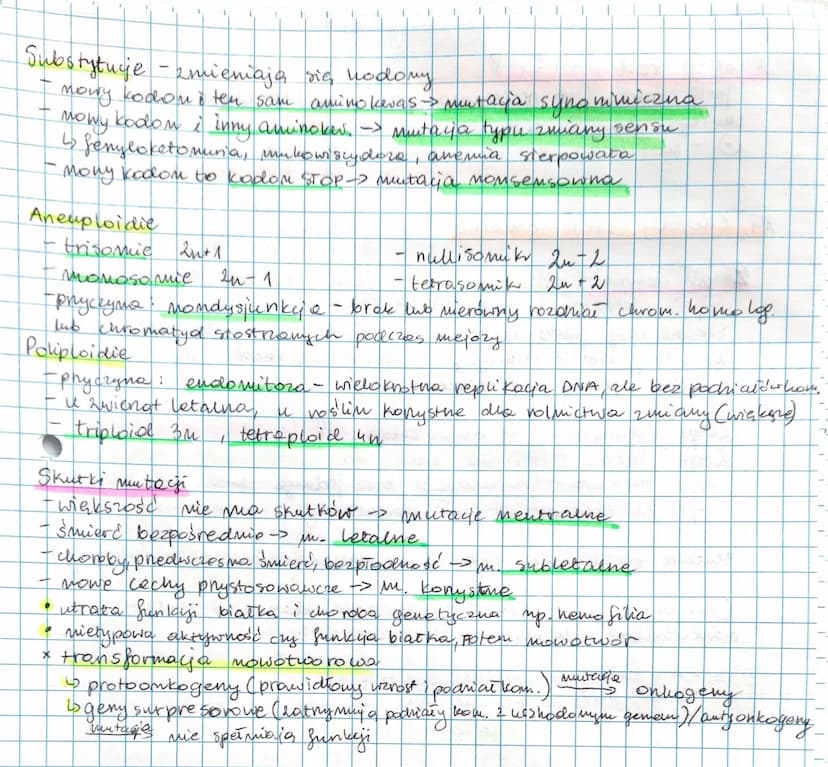 Substytucje - zmieniają się kodony
- nowy kodon i ten sam aminokwas → mutacja synonimiczna
- nowy kodon i inny aminokw. → mutacja typu zmiany sensu
↳ fenyloketonuria, mukowiscydoza, anemia sierpowata
- nowy kodon to kodon STOP → mutacja nonsensowna
Aneuploidie
- trisomie 2n+1 - nullisomik 2n-2
- monosomie 2n-1 - tetrasomik 2n+2
- przyczyna: nondysjunkcja - brak lub nierówny rozdział chrom. homolog.
lub chromatyd siostrzanych podczas mejozy
Poliploidie
- przyczyna: endomitoza - wielokrotna replikacja DNA, ale bez podziałów kom.
- u zwierząt letalna, u roślin korzystne dla rolnictwa zmiany (większe)
- triploid 3n, tetraploid 4n
Skutki mutacji
- większość nie ma skutków → mutacje neutralne
- śmierć bezpośrednio → m. letalne
- choroby, przedwczesna śmierć, bezpłodność → m. subletalne
- nowe cechy przystosowawcze → m. korzystne
• utrata funkcji białka i choroba genetyczna np. hemofilia
• nietypowa aktywność czy funkcja białka, potem nowotwór
× transformacja nowotworowa
↳ protoonkogeny (prawidłowy wzrost i podział kom.) mutacja → onkogeny
↳ geny supresorowe (zatrzymują podziały kom. z uszkodzonym genem)/antyonkogeny
mutacja → nie spełniają funkcji